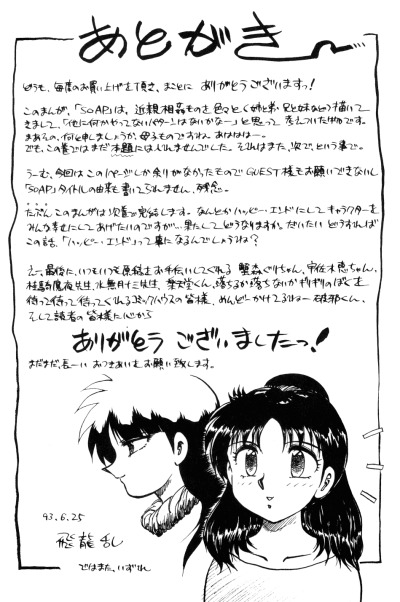 あとがき
どうも、毎度のお買い上げを頂き、まことに ありがとうございますっ!
このまんが、「SOAP」は、近親相姦ものを色々と(姉と弟・兄と妹など)描いて
きまして、「他に何かやってないパターンはないかなー」と思って考えついたわけです。
まあその、何と申しましょうか、母ものですね。あはははー。
でも、この巻ではまだ本題にはいれませんでした。それはまた、次で、という事で。
うーむ、今回はこの1ページしか余りがなかったものでGUEST様もお願いできないし
「SOAP」タイトルの由来も書いてられません、残念。
たぶん、このまんがは次巻で完結します。なんとかハッピー・エンドにしてキャラクターを
みんな幸せにしてあげたいのですが…果たしてどうなりますか。だいたい どうすれば
この話、「ハッピー・エンド」って事になるんでしょうね?
えー、最後に、いつもいつも原稿をお手伝いしてくれる 蟹森ぐりちゃん、宇佐木恵ちゃん、
桂騎鷹夜先生、水無月十三先生、葉堂くん、落ちるか落ちないかギリギリのぼくを
待って待って待ってくれるコミックハウスの皆様、めんどーかけてるねー 破邪くん、
そして読者の皆様に心から
ありがとう ございましたっ!
まだまだ、長ーい おつきあいを お願い致します。
93.6.25
飛龍乱
ではまた、いずれ